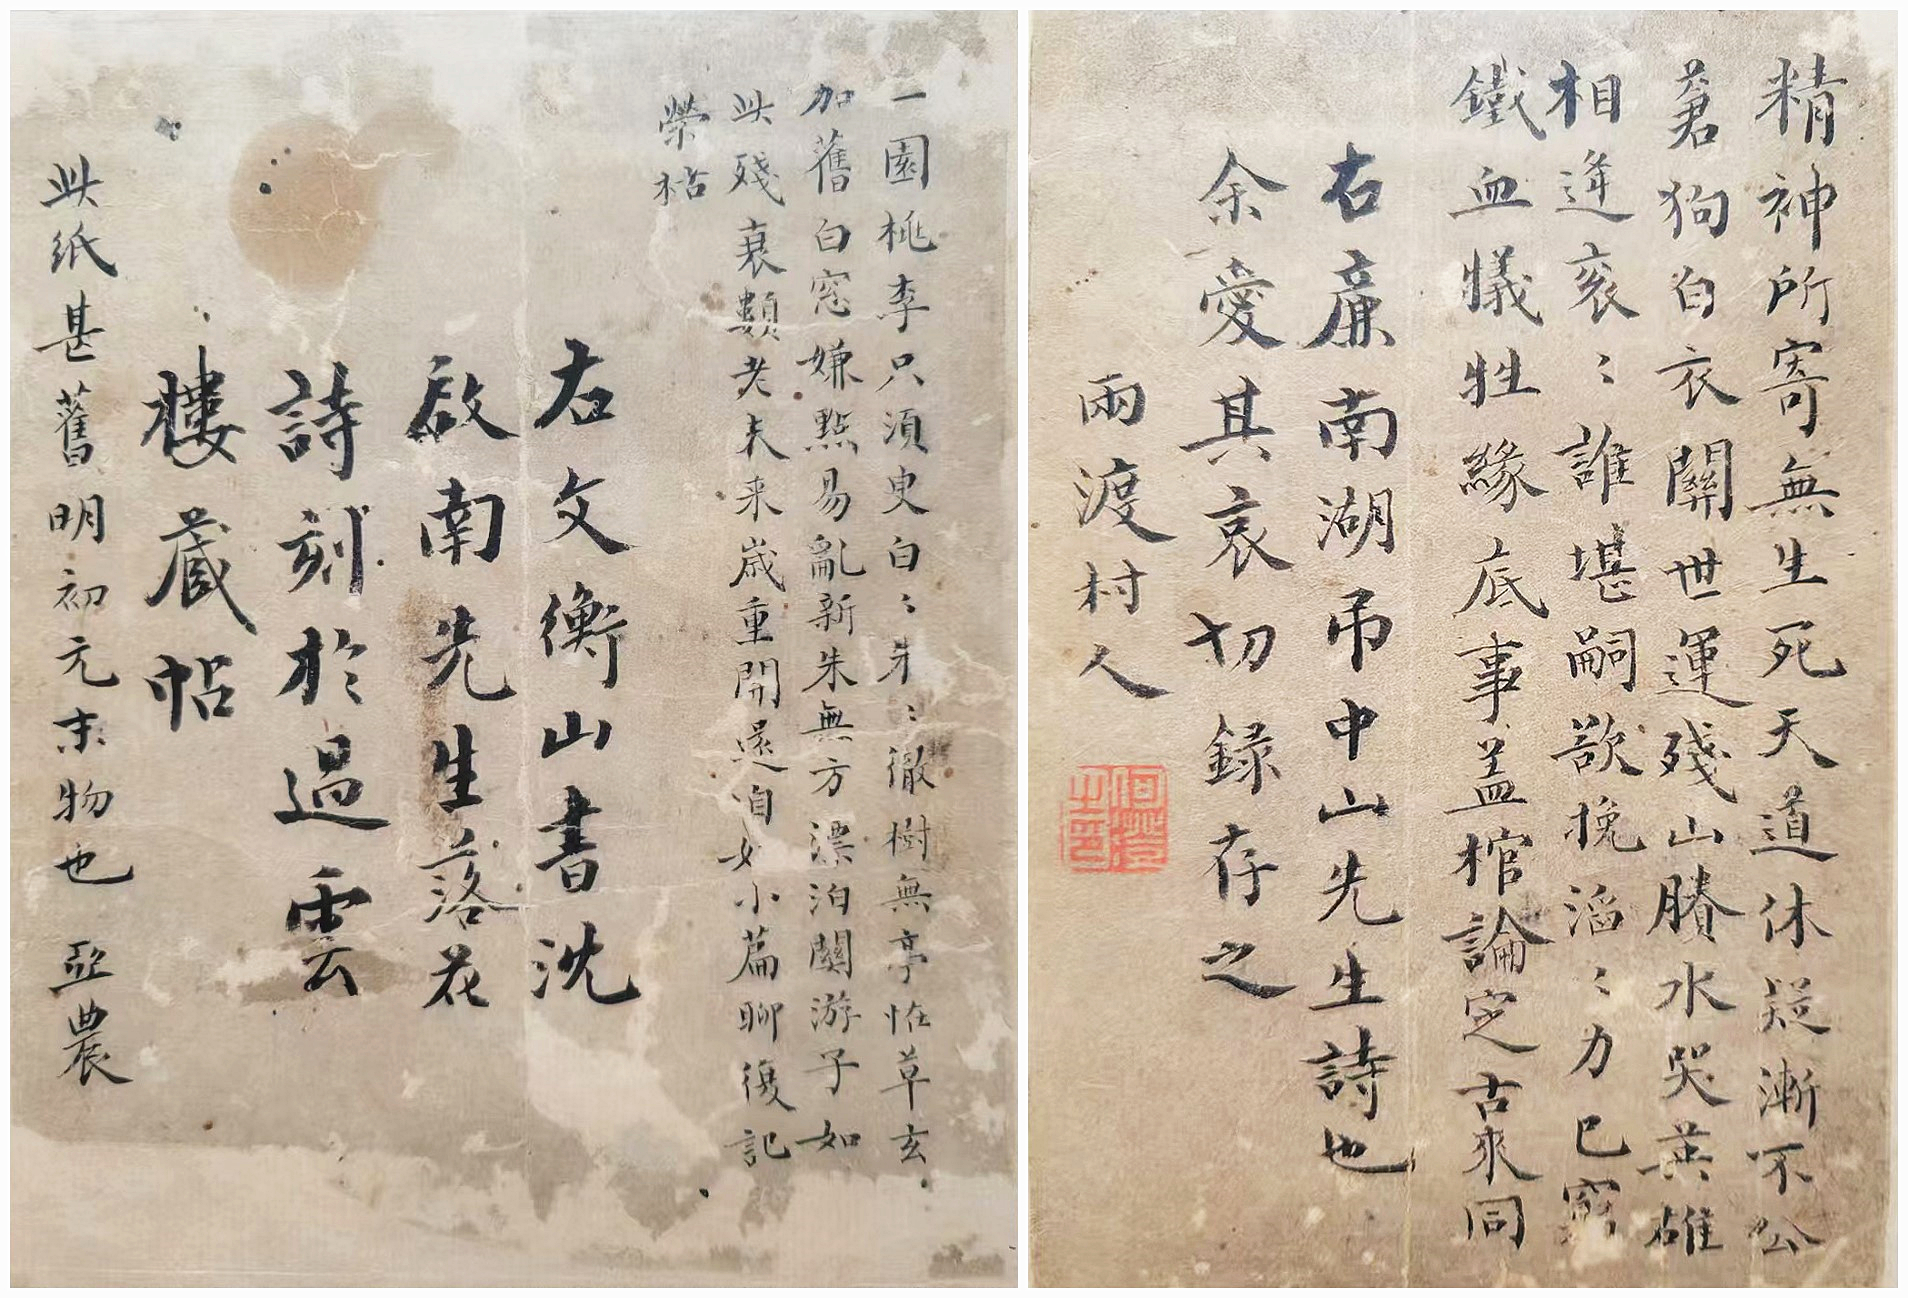 精神所寄無生死天道休疑漸不公
蒼狗白衣關世運殘山賸水哭英雄
相逢衮〻誰堪嗣欲挽滔〻力已窮
鐵血犧牲緣底事蓋棺論定古來同
右廉南湖吊中山先生詩也
余愛其哀切録存之
兩渡村人
何澄之印
一園桃李只須臾白〻朱〻徹樹無亭怪草玄
加舊白窓嫌點易亂新朱無方漂泊關游子如
此殘衰類老夫来歲重開還自好小篇聊復記
榮枯
右文衡山書沈
啟南先生落花
詩刻於過雲
樓藏帖
此紙甚舊明初元末物也 亞農